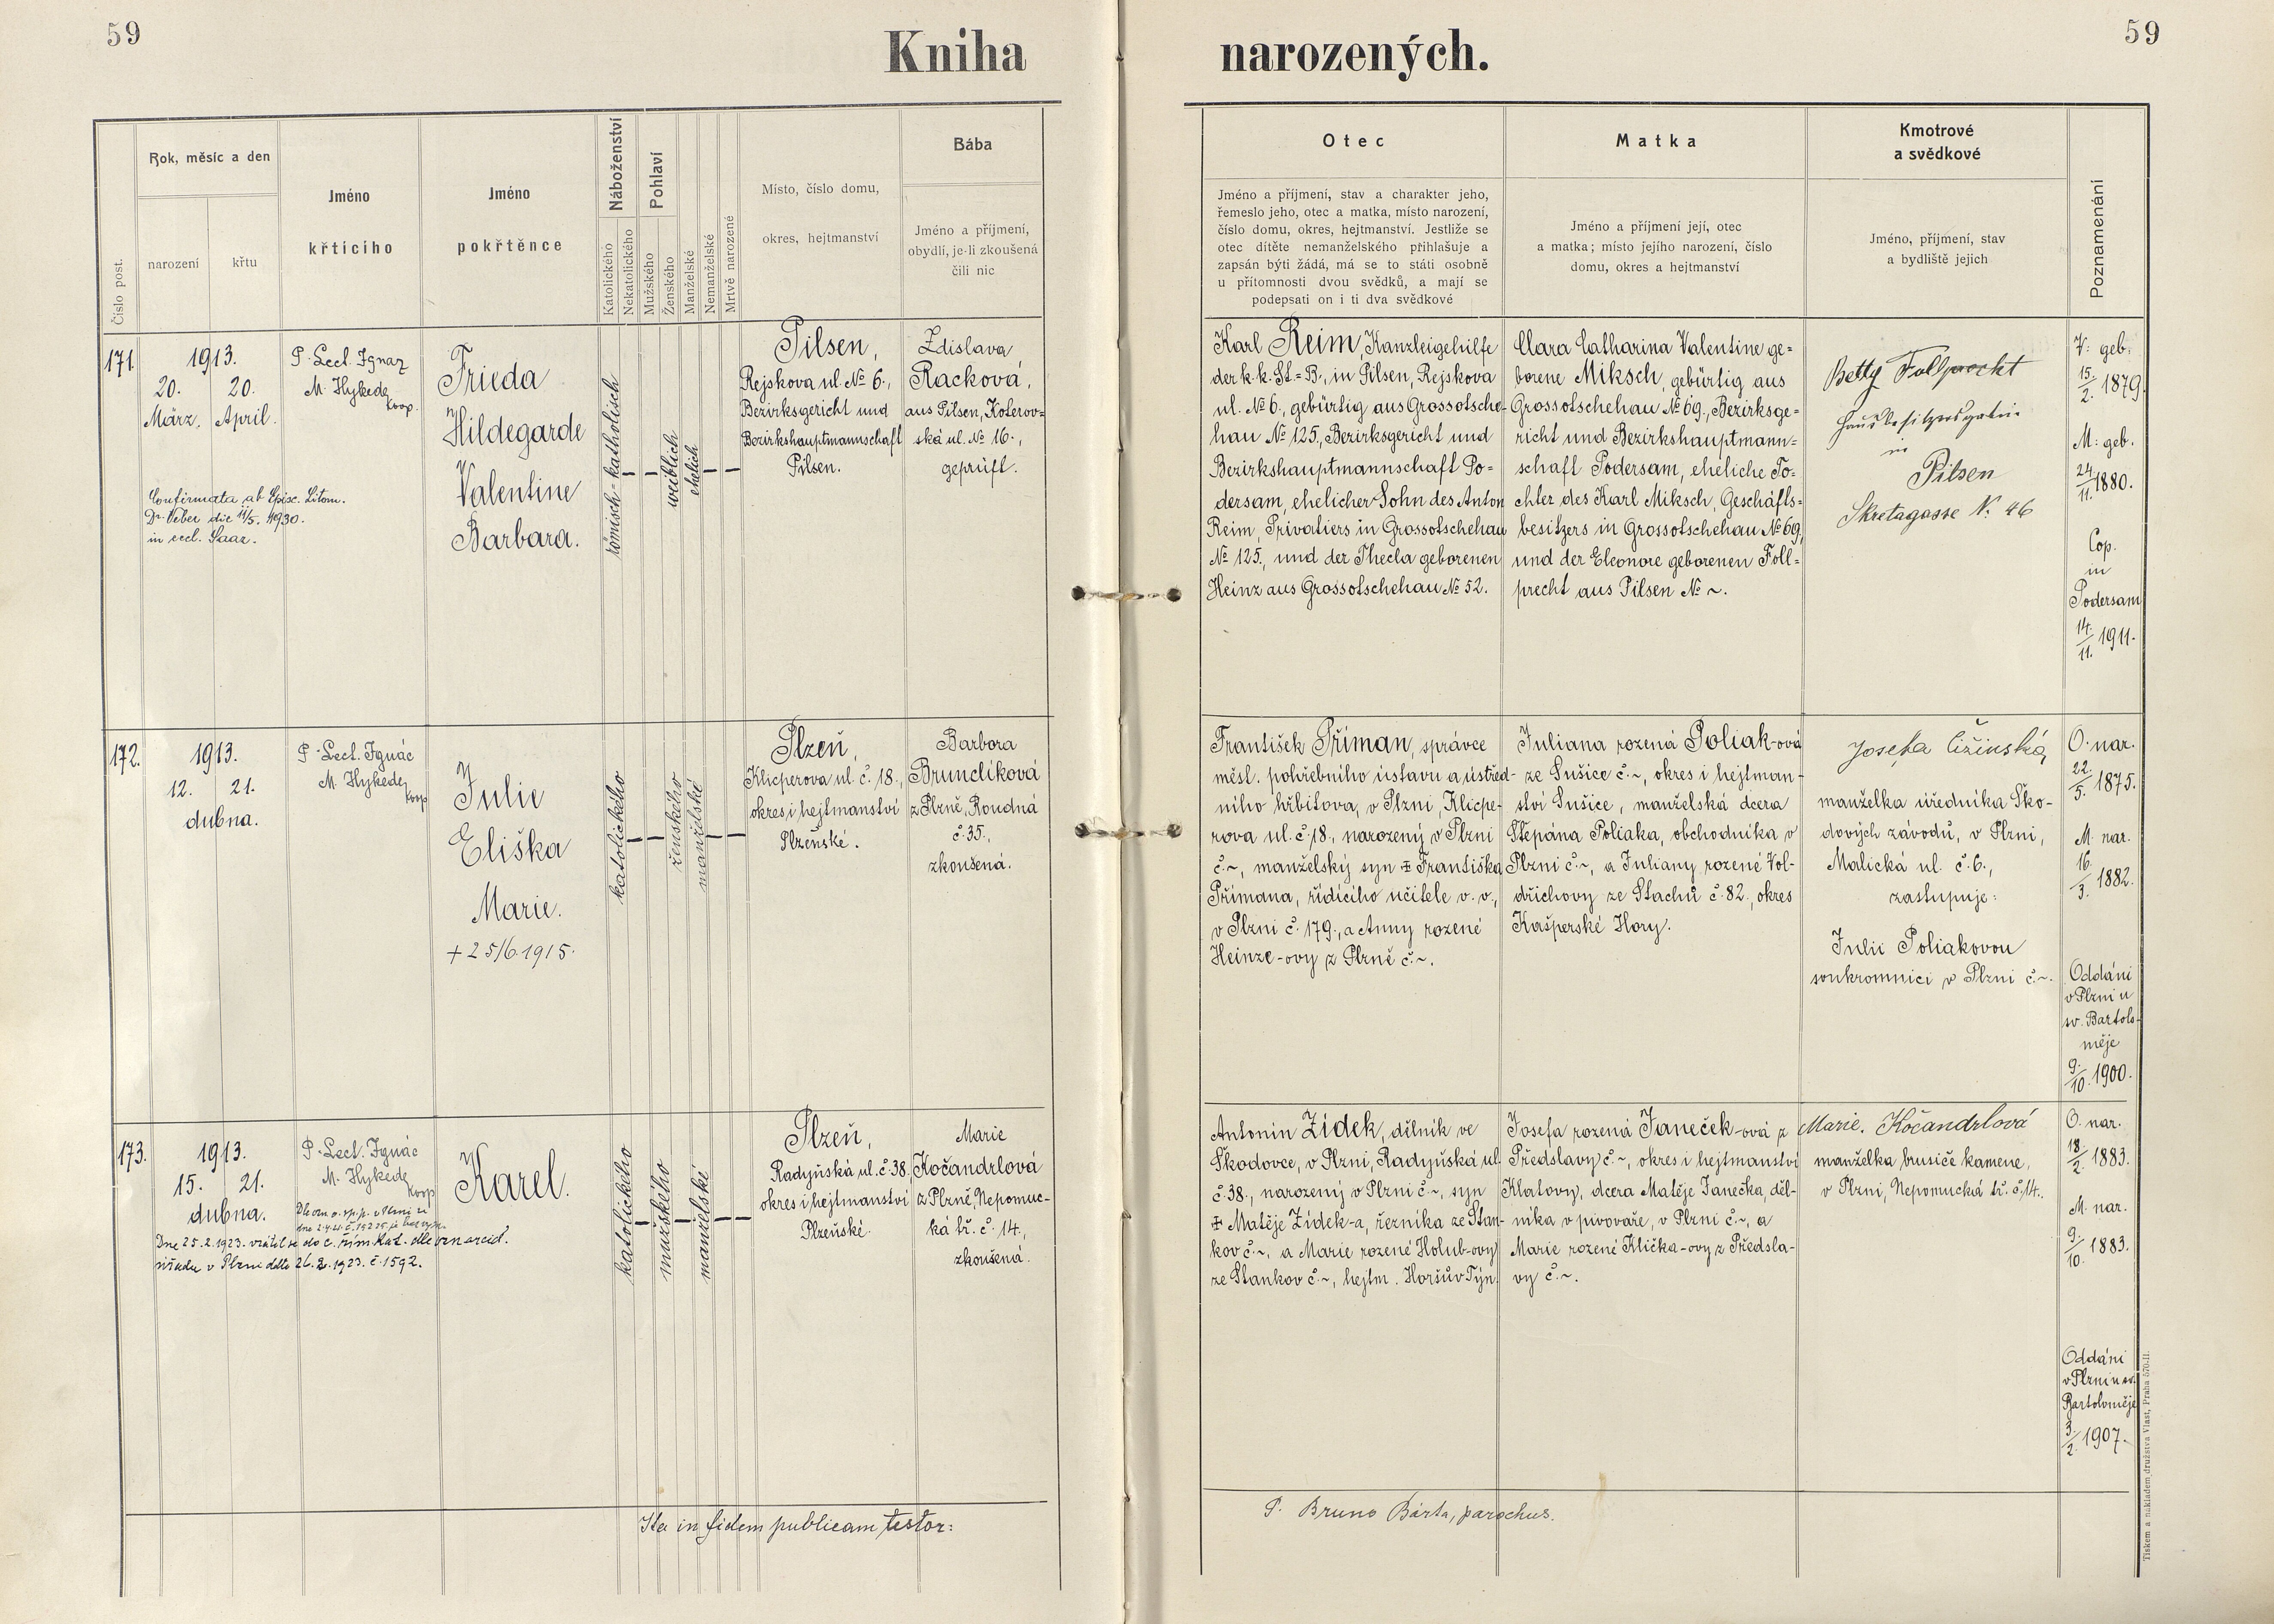 59
Kniha
narozených.
59
Číslo post.
Rok, měsíc a den
narození
křtu
Jméno
křticího
Jméno
pokřtěnce
Náboženství
Katolického
Nekatolického
Pohlaví
Mužského
Ženského
Manželské
Nemanželské
Mrtvě narozené
Místo, číslo domu,
okres, hejtmanství
Bába
Jméno a příjmení,
obydlí, je-li zkoušená
čili nic
Otec
Jméno a příjmení, stav a charakter jeho,
řemeslo jeho, otec a matka, místo narození,
číslo domu, okres, hejtmanství. Jestliže se
otec dítěte nemanželského přihlašuje a
zapsán býti žádá, má se to státi osobně
u přítomnosti dvou svědků, a mají se
podepsati on i ti dva svědkové
Matka
Jméno a příjmení její, otec
a matka; místo jejího narození, číslo
domu, okres a hejtmanství
Kmotrové
a svědkové
Jméno, příjmení, stav
a bydliště jejich
Poznamenání
171.
1913.
20. 20.
März, April.
Confirmata ab Episc. Litom.
Dr. Veber die 11/5. 1930.
in eccl. Saaz.
P. Lect. Ignaz
M. Hykede
koop.
Frieda
Hildegarde
Valentine
Barbara.
römisch-katholisch
weiblich
ehelich
Pilsen,
Rejskova ul. № 6.,
Bezirksgericht und
Bezirkshauptmannschaft
Pilsen.
Zdislava
Racková,
aus Pilsen, Koterov-
ská ul. № 16.,
geprüft.
Karl Reim, Kanzleigehilfe
der k.k. St.=B., in Pilsen, Rejskova
ul. № 6., gebürtig aus Grossotsche-
hau № 125., Bezirksgericht und
Bezirkshauptmannschaft Po=
dersam, ehelicher Sohn des Anton
Reim, Privatiers in Grossotschehau
№ 125., und der Thecla geborenen
Heinz aus Grossotschehau № 52.
Clara Catharina Valentine ge=
borene Miksch, gebürtig aus
Grossotschehau № 69., Bezirksge=
richt und Bezirkshauptmann=
schaft Podersam, eheliche To=
chter des Karl Miksch, Geschäfts=
besitzers in Grossotschehau № 69,
und der Eleonore geborenen Foll=
precht aus Pilsen № ~.
Betty Follprecht
Hausbesitzersgattin
in
Pilsen
Skretagasse N. 46
V: geb.
15./2. 1879.
M: geb.
24./11. 1880.
Cop.
in
Podersam
14./11. 1911.
172.
1913.
12. 21.
dubna.
P. Lect. Ignác
M. Hykede
koop
Julie
Eliška
Marie.
+ 25/6. 1915.
katolického
ženského
manželské
Plzeň,
Klicperova ul. č. 18.,
okres i hejtmanství
Plzeňské.
Barbora
Brunclíková
z Plzně, Roudná
č. 35.,
zkoušená.
František Příman, správce
měst. pohřebního ústavu a ústřed-
ního hřbitova, v Plzni, Klicpe-
rova ul. č. 18., narozený v Plzni
č. ~, manželský syn ‡ Františka
Přímana, řídícího učitele v. v.,
v Plzni č. 179., a Anny rozené
Heinze-ovy z Plzně č. ~.
Juliana rozená Poliak-ová
ze Sušice č. ~, okres i hejtman-
ství Sušice, manželská dcera
Štěpána Poliaka, obchodníka v
Plzni č. ~, a Juliany rozené Vol-
dřichovy ze Stachů č. 82., okres
Kašperské Hory.
Josefa Čižinská,
manželka úředníka Ško-
dových závodů, v Plzni,
Malická ul. č. 6.,
zastupuje:
Julii Poliakovou
soukromnici v Plzni č. ~.
O. nar.
22./5. 1875.
M. nar.
16./3. 1882.
Oddáni
v Plzni u
sv. Bartolo-
měje
9./10. 1900.
173.
1913.
15. 21.
dubna.
P. Lect. Ignác
M. Hykede
koop
Dne 25.2.1923. vrátil se do c. řím. kat. dle ozn arcid.
úřadu v Plzni ddto 26.2.1923. č. 1592.
Karel.
katolického
mužského
manželské
Plzeň,
Radyňská ul. č. 38.
okres i hejtmanství
Plzeňské.
Marie
Kočandrlová
z Plzně, Nepomuc-
ká tř. č. 14.,
zkoušená.
Antonín Žídek, dělník ve
Škodovce, v Plzni, Radyňská ul.
č. 38., narozený v Plzni č. ~, syn
‡ Matěje Žídek-a, řezníka ze Stan-
kov č. ~, a Marie rozené Holub-ovy
ze Stankov č. ~, hejtm. Horšův Týn.
Josefa rozená Janeček-ová z
Předslavy č. ~, okres i hejtmanství
Klatovy, dcera Matěje Janečka, děl-
níka v pivovaře, v Plzni č. ~, a
Marie rozené Klička-ovy z Předsla-
vy č. ~.
Marie. Kočandrlová
manželka brusiče kamene,
v Plzni, Nepomucká tř. č. 14.
O. nar.
18./2. 1883.
M. nar.
9./10. 1883.
Oddáni
v Plzni u sv.
Bartoloměje
3./2. 1907.
Ita in fidem publicam testor:
P. Bruno Bárta, parochus.
Tiskem a nákladem družstva Vlast, Praha 570-II.